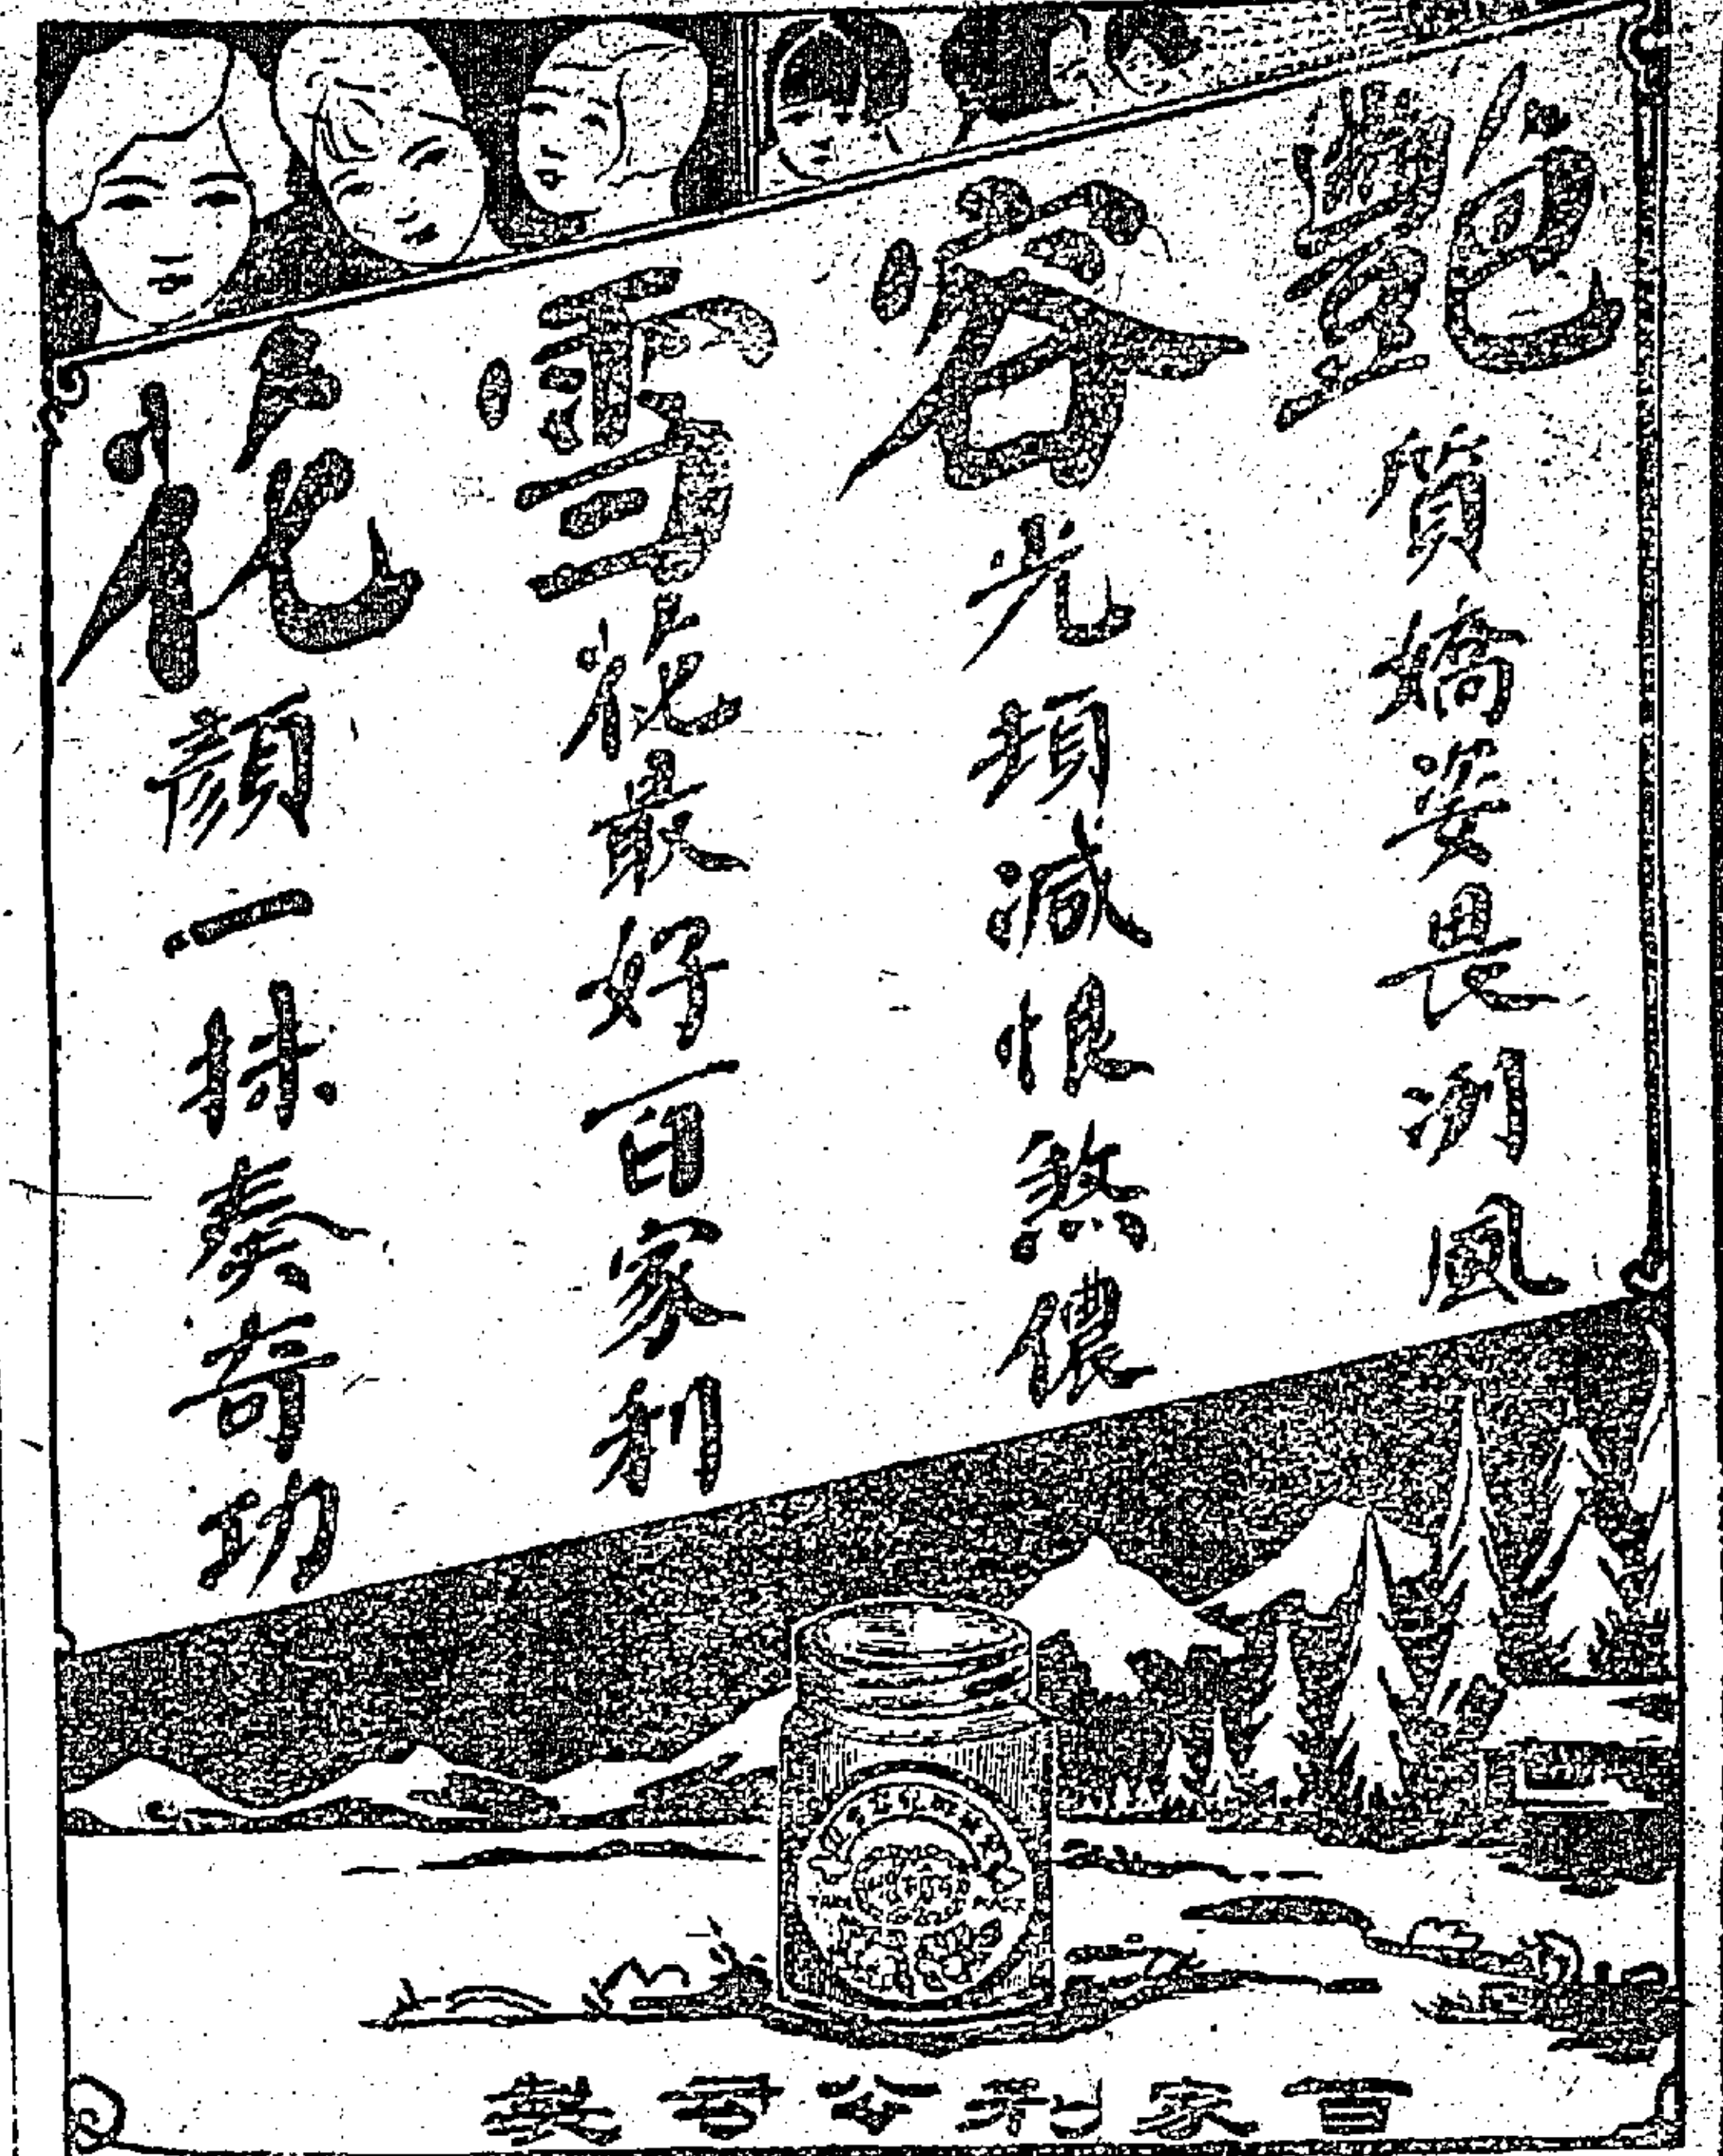 艷質嬌姿畏冽風
容光頓減恨煞儂
雪花最好百家利
花顏一抹奏奇功
百家利公司製